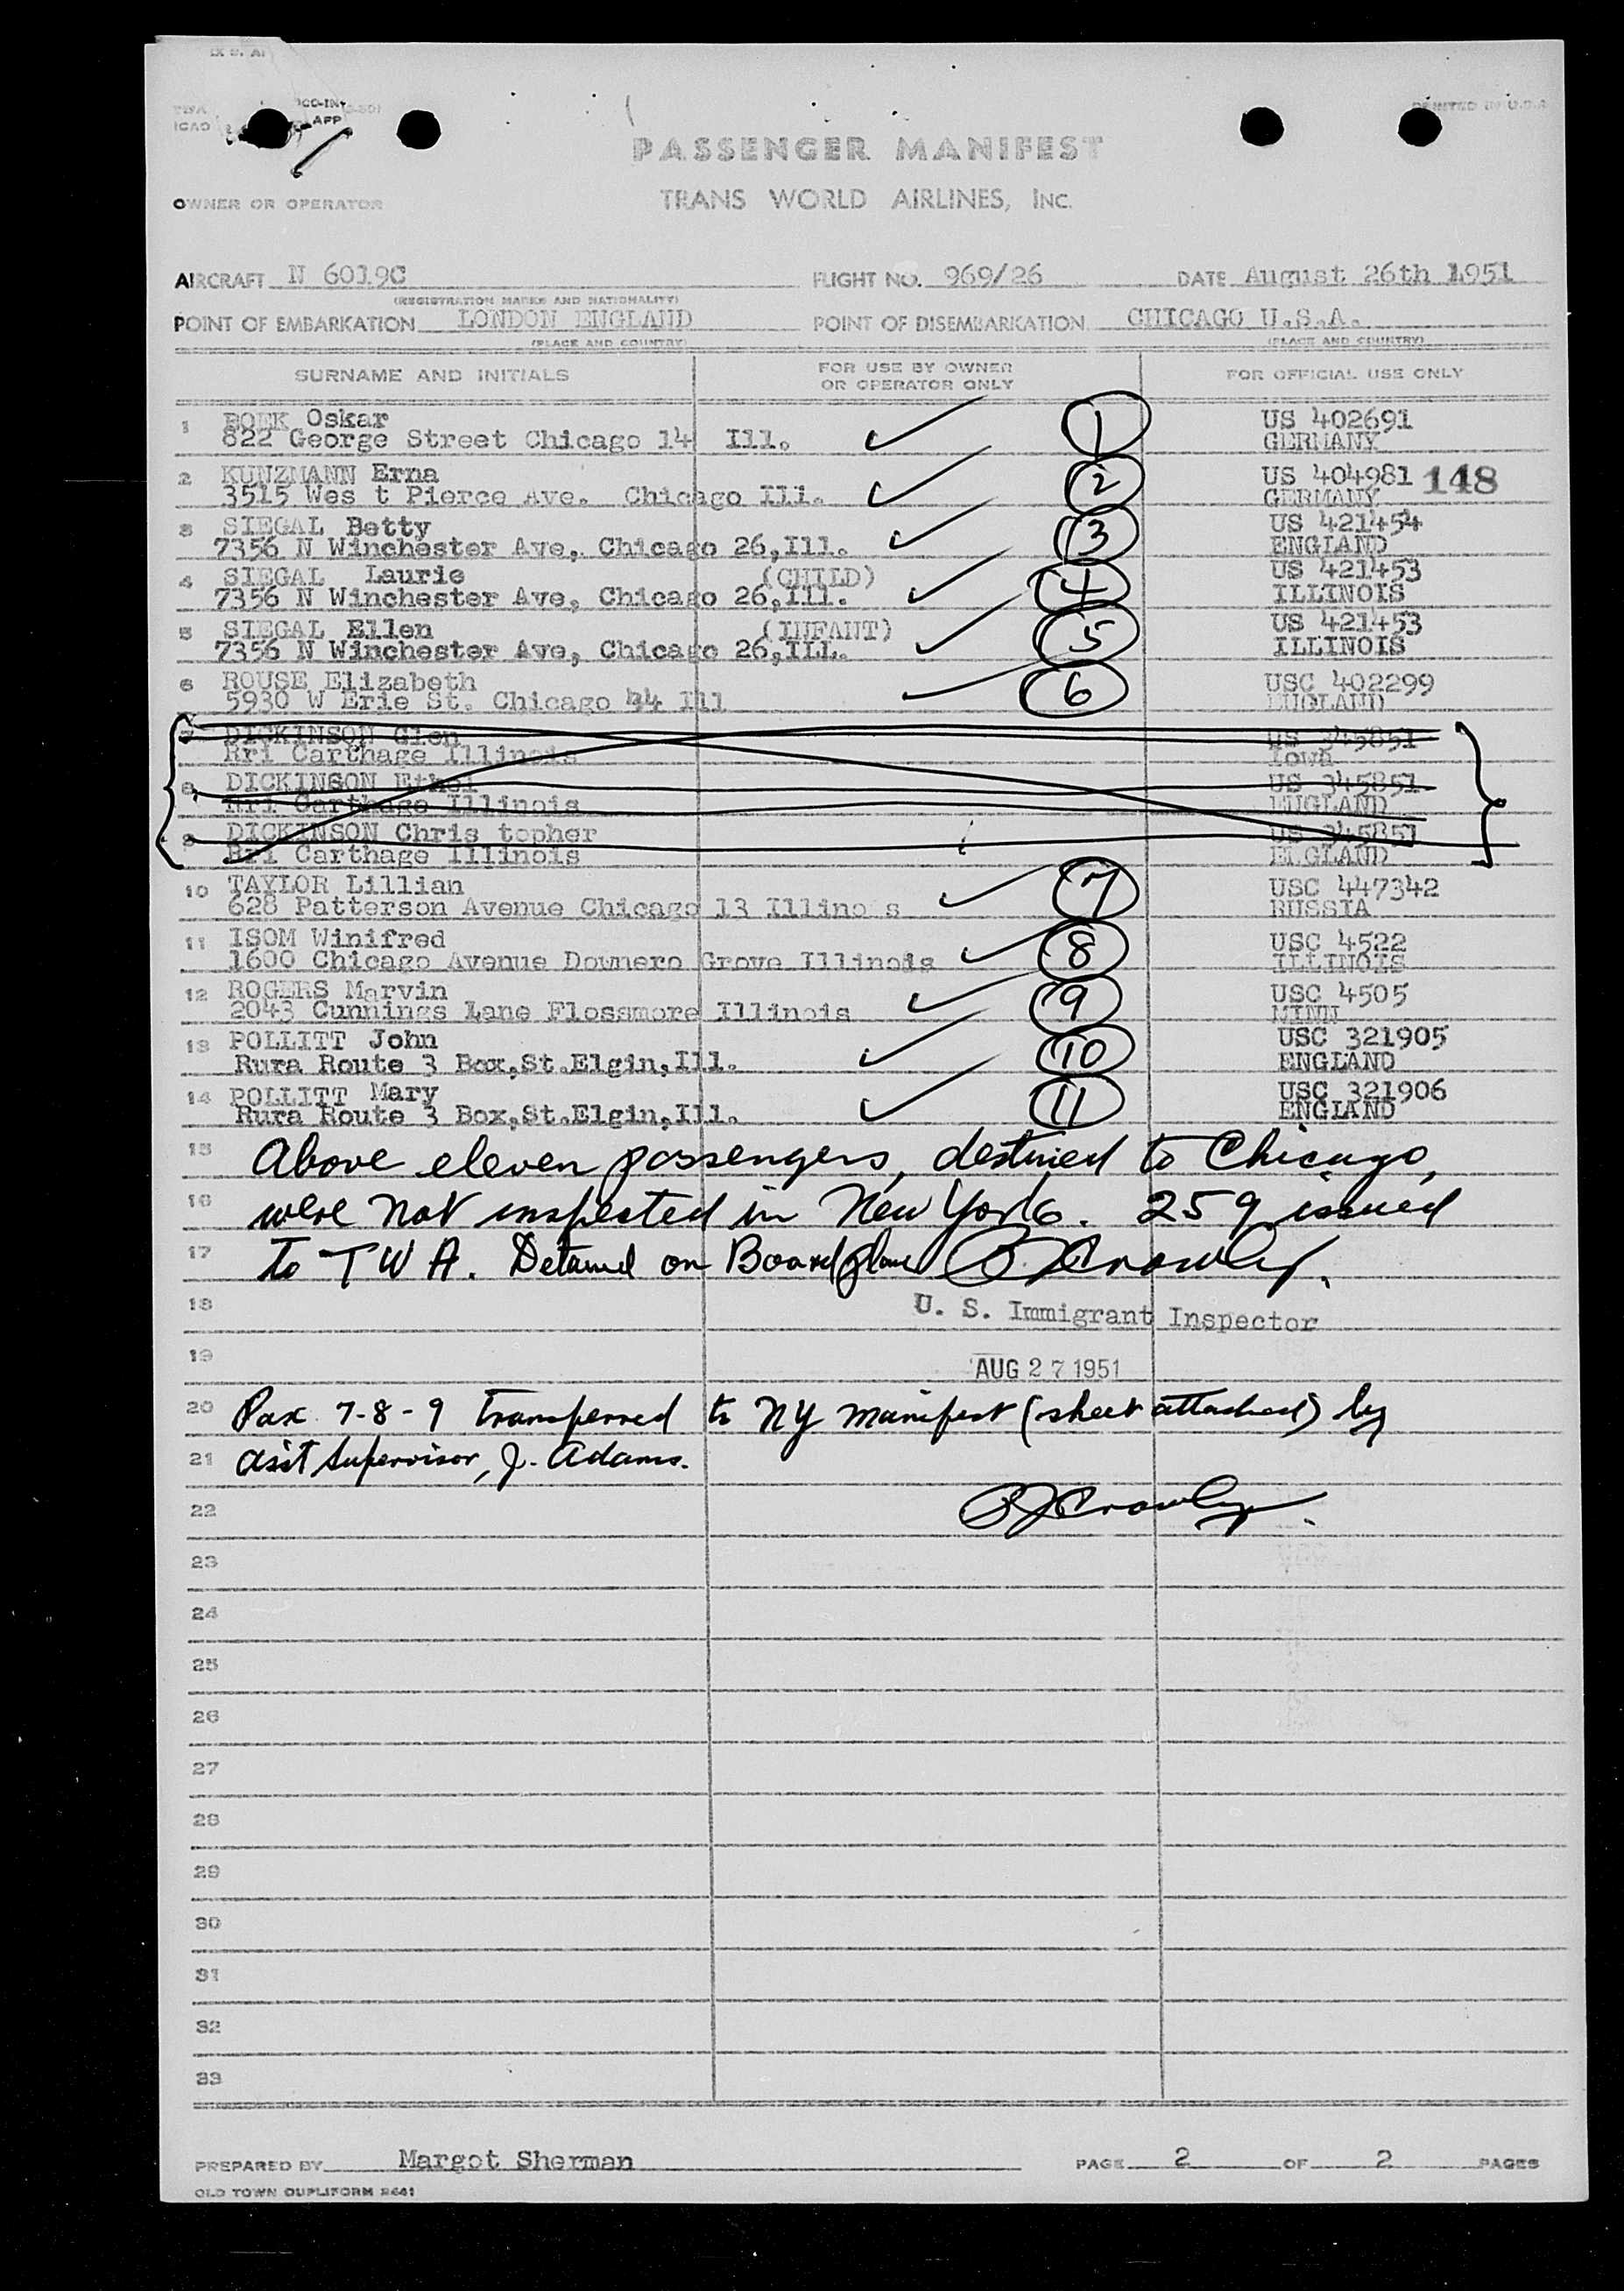 (X U. A)
TWA
ICAO
APP
PRINTED IN U.S.A
PASSENGER MANIFEST
OWNER OR OPERATOR TRANS WORLD AIRLINES, INC.
AIRCRAFT N 6019C FLIGHT NO. 969/26 DATE August 26th 1951
(REGISTRATION MARKS AND NATIONALITY)
POINT OF EMBARKATION LONDON ENGLAND POINT OF DISEMBARKATION CHICAGO U.S.A.
(PLACE AND COUNTRY) (PLACE AND COUNTRY)
SURNAME AND INITIALS FOR USE BY OWNER OR OPERATOR ONLY FOR OFFICIAL USE ONLY
1 BOEK Oskar 1 US 402691
822 George Street Chicago 14 Ill. GERMANY
2 KUNZMANN Erna 2 US 404981 148
3515 Wes t Pierce Ave. Chicago Ill. GERMANY
3 SIEGAL Betty 3 US 421454
7356 N Winchester Ave, Chicago 26,Ill. ENGLAND
4 SIEGAL Laurie (CHILD) 4 US 421453
7356 N Winchester Ave, Chicago 26,Ill. ILLINOIS
5 SIEGAL Ellen (INFANT) 5 US 421453
7356 N Winchester Ave, Chicago 26,ILL. ILLINOIS
6 ROUSE Elizabeth 6 USC 402299
5930 W Erie St. Chicago 44 Ill ENGLAND
7 DICKINSON Glen US 345851
Rri Carthage Illinois Iowa
8 DICKINSON Ethel US 345851
Rri Carthage Illinois ENGLAND
9 DICKINSON Chris topher US 345851
Rri Carthage Illinois ENGLAND
10 TAYLOR Lillian 7 USC 447342
628 Patterson Avenue Chicago 13 Illino s RUSSIA
11 ISOM Winifred 8 USC 4522
1600 Chicago Avenue Downero Grove Illinois ILLINOIS
12 ROGERS Marvin 9 USC 4505
2043 Cunnings Lane Flossmore Illinois MINN
13 POLLITT John 10 USC 321905
Rura Route 3 Box,St.Elgin,Ill. ENGLAND
14 POLLITT Mary 11 USC 321906
Rura Route 3 Box,St.Elgin,Ill. ENGLAND
15 Above eleven passengers, destined to Chicago,
16 were not inspected in New York. 259 issued
17 to TWA. Detained on Board plane BJCrowley.
18 U. S. Immigrant Inspector
19 AUG 27 1951
20 Pax 7-8-9 transferred to NY manifest (sheet attached) by
21 Ass't Supervisor, J. Adams.
22 BJCrowley
23
24
25
26
27
28
29
30
31
32
33
PREPARED BY Margot Sherman PAGE 2 OF 2 PAGES
OLD TOWN DUPLIFORM 2641